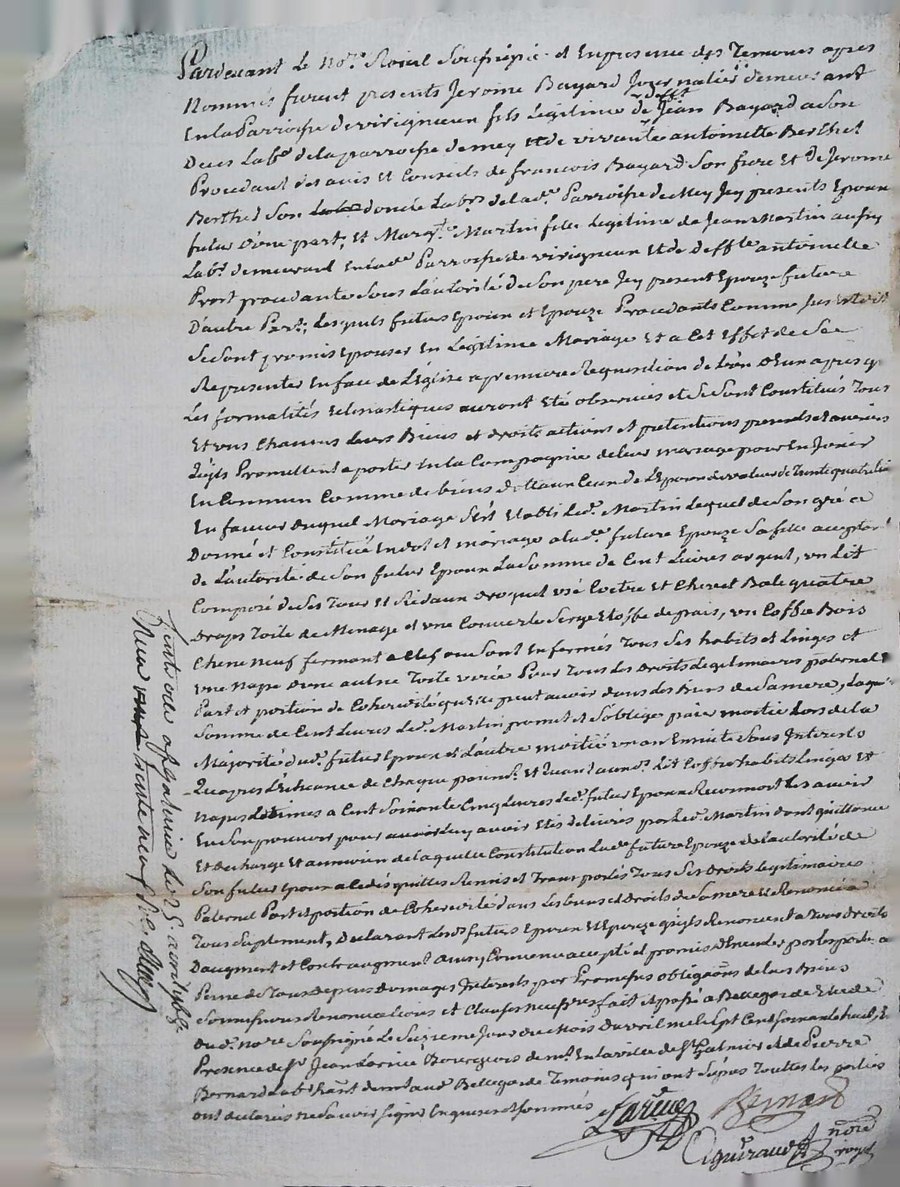 Pardevant le no.re Roial Sousigné et Enpresence des Temoins apres
Nommés furent presents Jerome Bayard Journalier demeurant
En la Parroisse de virigneux fils Legitime de deff.t Jean Bayard a Son
Deces lab.r de la parroisse de mey et de vivante antoinette Berthet
Procedant des avis et Conseils de francois Bayard Son frere Et de Jerome
Berthet Son oncle Lab.rs de lad.e Parroisse de Mey Jcy presents Epoux
futur d'une part, Et Marg.te Martin fille Legitime de Jean Martin
Lab.r demeurant En lad.e Parroisse de virigneux Et de deffte antoinette
procedante Sous L'autorité de Son pere Jcy present Epouze future
D'autre Part; Lesquels futurs Epoux et Epouze Procedants Comme
Se Sont promis Epouser En Legitime Mariage Et a Cet Effet de Se
Representer En face de L'Eglise a premiere Requisition de L'un d'Eux apres q.
Les formalités Eclesiastiques auront Eté observées et Se Sont Constitués Tous
Et uns Chacuns leurs Biens et droits actions et pretentions presents et avenirs
Qu'ils Promettent aporter En la Compagnie de leur mariage pour En Jouir
En Commun Comme de biens de L'Epoux de valeur de Trente quatre
En faveur duquel Mariage S'est Etabli led. Martin Lequel de Son gré a
Donné et Constitué En dot et mariage a lad.e future Epouze Sa fille acceptant
de L'autorité de Son futur Epoux La Somme de Cent Livres argent, un Lit
Composé de Ses Tour et Rideaux usé Coetre et Chevet Bale quatre
Draps Toile de Menage et une Couverte Serge Etoffe de païs, un Coffre Bois
Chene neuf fermant a Clef ou Sont Enfermés Tous Ses habits et Linges et
une Nape d'une aulne Toile Pour Tous les Droits de Legitimaires paternels
Part et portion de Coheredité qu'elle peut avoir dans les biens de Sa mere, Laquelle
Somme de Cent Livres led. Martin promet et S'oblige païer moitié Lors de la
Majorité dud. futur Epoux et L'autre moitié un an Ensuite Sans Interets
Qu'apres L'echeance de Chaque paiem.t Et Quant aux d. Lit Coffre habits Linges et
Napes Estimes a Cent Soixante Cinq Livres led. futur Epoux Reconnoit les avoir
En Son pouvoir pour luy avoir Etés delivrés par led. Martin dont quittance
Et decharge Et au moien de laquelle Constitution Lad.e future Epouze de L'autorité de
Son futur Epoux a Cedé quitté Remis et Transporté Tous Ses Droits Legitimaires
Paternel Part et portion de Coheredité dans les biens et Droits de Sa mere Et Renoncé a
Tous Suplement, Declarant Lesd. futurs Epoux et Epouze qu'ils Renoncent a Tous droits
D'augment et Contr augment ainsy Convenu accepté et promis observer par les parties a
Peine de Tous depens domages Interets par Promesses obligaõns de leurs Biens
Soumissions Renonciations et Clauses necess.res fait et passé a Bellegarde Etude
du d. No.re Sousigné Le Seizieme Jour du Mois d'avril mil Sept Cent Soixante huit, En
Presence de S.r Jean Larive Bourgeois dem.t En la ville de S.t Galmier et de Pierre
Bernard Lab.r hant dem.t aud. Bellegarde Temoins qui ont Signé Touttes les parties
ont declaré ne Savoir Signer Enquises et Sommées
Larive Bernard
noire
royal
Controlé a S.t Galmier le 25 avril 1768
Reçu trente neuf s.